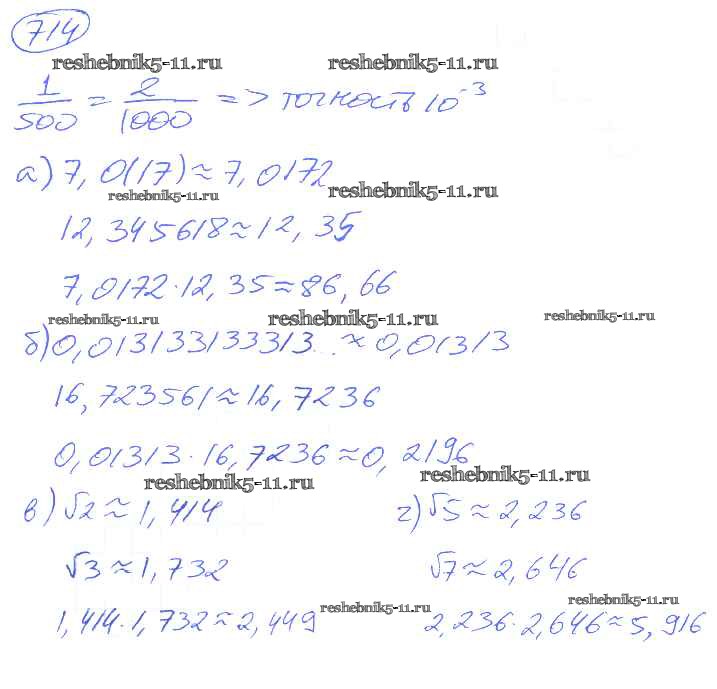 714
reshebnik5-11.ru reshebnik5-11.ru
1/500 = 2/1000 => точность 10⁻³
а) 7,0(17) ≈ 7,0172
reshebnik5-11.ru reshebnik5-11.ru
12,345618 ≈ 12,35
7,0172·12,35 ≈ 86,66
reshebnik5-11.ru reshebnik5-11.ru reshebnik5-11.ru
б) 0,013133133313... ≈ 0,01313
16,723561 ≈ 16,7236
0,01313·16,7236 ≈ 0,2196
reshebnik5-11.ru reshebnik5-11.ru
в) √2 ≈ 1,414 г) √5 ≈ 2,236
√3 ≈ 1,732 √7 ≈ 2,646
reshebnik5-11.ru reshebnik5-11.ru
1,414·1,732 ≈ 2,449 2,236·2,646 ≈ 5,916